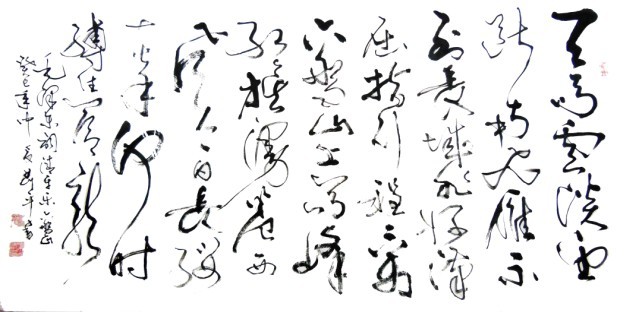 天高雲淡望
断南飞雁不
到長城非好漢
屈指行程二万
六盤山上高峰
红旗漫卷西
风今日長缨
在手何时
缚住苍龙
毛泽东词清平乐六盤山
癸巳年仲夏